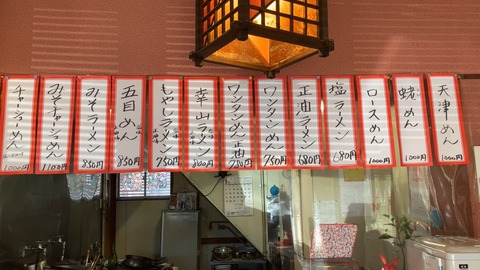 天津めん 1000円
蛯めん 1000円
ロースめん 1000円
塩ラーメン 680円
正油ラーメン 680円
ワンタンメン 750円
ワンタンめん 正油 750円
幸山ラーメン 800円
もやしラーメン 750円
五目めん 850円
みそラーメン 850円
みそチャーシューめん 1100円
チャーシューめん 1000円